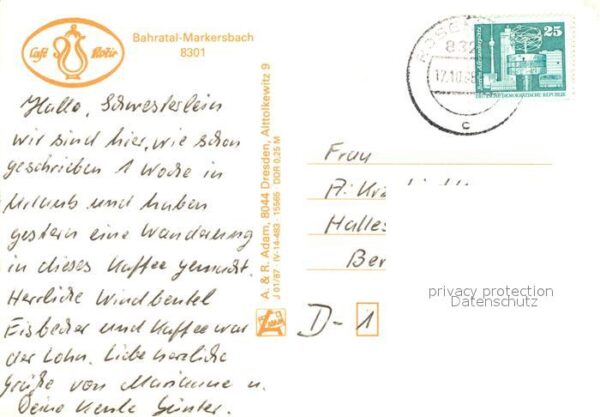 Café Notir
Bahratal-Markersbach
8301
Hallo, Schwesterlein
wir sind hier, wie schon
geschrieben 1 Woche in
Urlaub und haben
gestern eine Wanderung
in dieses Kaffee gemacht.
Herrliche Windbeutel
Eisbecher und Kaffee war
der Lohn. Liebe herzliche
Grüße von Marianne u.
Deine Günter.
A. & R. Adam, 8044 Dresden, Alttolkewitz 9
J 01/87 IV-14-483 15565 DDR 0,25 M
832
17.10.88
c
25
Berlin, Alexanderplatz
DEUTSCHE DEMOKRATISCHE REPUBLIK
Frau
Halles
Ber
privacy protection
Datenschutz
D-1